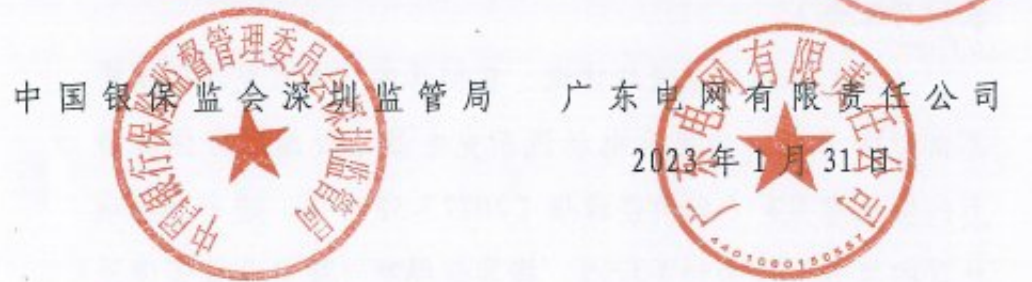 中国银保监会深圳监管局 广东电网有限责任公司
2023年1月31日
中国银行保险监督管理委员会深圳监管局
广东电网有限责任公司